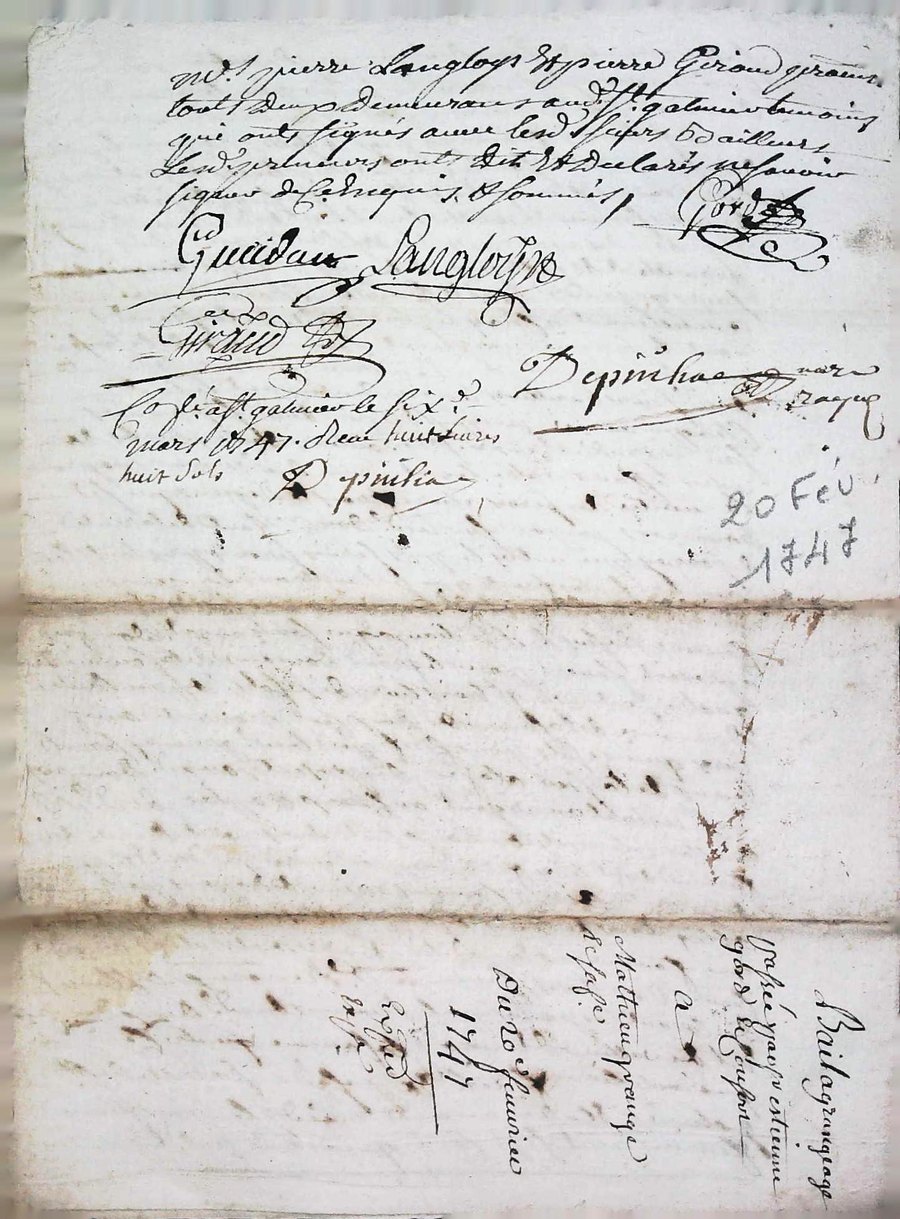 me.s pierre Langloys Et pierre Giraud
touts deux demeurans aud. st. galmier temoins
qui onts signés avec lesd. sieurs bailleurs
Lesd. preneurs onts dit Et declarés ne savoir
signer de Ce Enquis & sommés,
Gord
Gueidan Langloys
Giraud
Depinhac
Con.lé a st. galmier le six.e
mars 1747. Receu huit livres
huit sols
Depinhac
20 Fév.
1747
Bail a grangeage
passé par sr estienne
gord
a
Mathieu grange
& sa fe
Du 20 feuvrier
1747
Exped